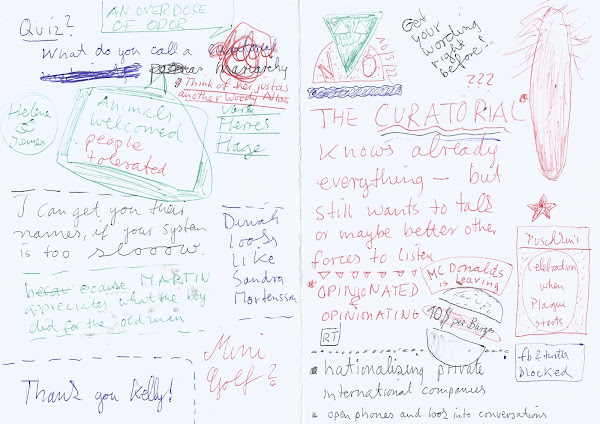 AN OVERDOSE
OF ODOR
Quiz?
What do you call a
monarchy
Think of her just as
another Woody Allan
Herres
Hage
Helena
James
Animals
welcomed
people
tolerated
I can get you their
names, if your System
is too slooow.
Dinah
Looks
Like
Sandra
Mortensson
because MARTIN
appreciates what the boy
did for the old man
Mini
Golf?
Thank you Kelly!
Get
your
wording
right
before!
???
THE CURATORIAL
Knows already
everything – but
still wants to talk
or maybe better other
forces to listen
OPINIONATED
OPINIONATING
RT
MC Donalds
is leaving
10$ per Burger
Celebration
when
Plague
starts
fb & twitter
blocked
nationalising private
international companies
open phones and look into conversations